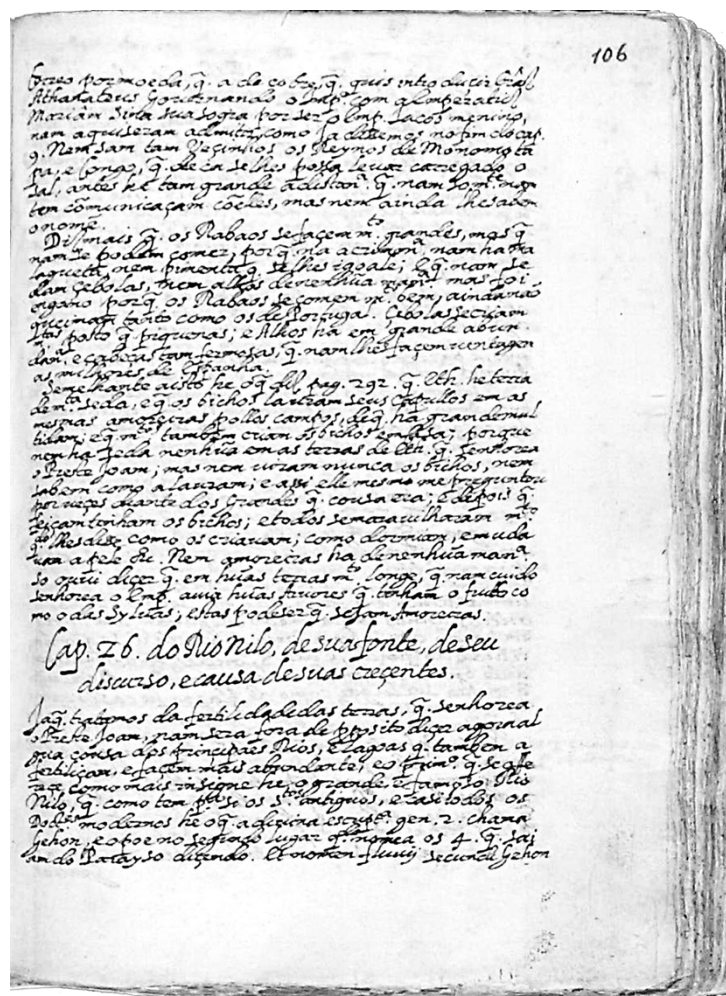 106
correo por moeda, q̃. a de cobre, q̃. quis introducir Grãd
Athanateus gouernando o Imp. com a Imperatriz
Mariam Sina sua sogra por ser o Emp. Iacob menino,
nam a quiseram admitir, como ja dissemos no fim do cap.
9. Nem sam tam veçinhos os Reynos de Monomota
pa, e Congo, q̃. de ca se lhes possa leuar carregado o
sal; antes he tam grande a distanª. q̃. nam so mᵗᵉ. nam
tem comunicaçam cõ elles, mas nem ainda lhe sabem
o nome.
Diz mais q̃. os Rabaos se façem mᵗᵒ. grandes, mas q̃
nam se podem comer, porq̃.
laquetta, nem pimenta q̃. se lhes igoale; e q̃. nam se
dam çebolas, nem alhos de nenhũa manª. mas foi
engano porq̃. os Rabaos se comem m. bem, ainda não
queimam tanto como os de Portugal. Çebolas se criam
mᵗᵃˢ, posto q̃. piquenas; e Alhos ha em grande abun
danª. e cabeças tam fermosas, q̃. nam lhe façem uentagen
as milhores de Espanha.
Semelhante a isto he o q̃. diz pag. 292. q̃. Eth. he terra
de mᵗᵃ seda, e q̃. os bichos lauram seus capullos em as
mesmas amoreiras pollos campos, de q̃. ha gran de mul
tidam; e q̃. mᵗᵒˢ tambem criam os bichos em casa; porque
nem ha seda nenhũa em as terras de Eth. q̃. senhorea
o Preste Joam; mas nem uiram nunca os bichos, nem
sabem como a lauram; e assi elle mesmo me preguntou
por ueçes diante dos Grandes q̃. cousa era; e depois q̃.
feiçam tenham os bichos; e todos se marauilharam mᵗᵒ
q̃do lhes disse como os criauam; como dormiam, e muda
uam a pele &c. Nem amoreiras ha de nenhũa manª.
so ouui diçer q̃. em hũas terras mᵗᵒ. longe, q̃. nam cuido
senhorea o Emp. auia hũas Aruores q̃. tinham o fruto co
mo o das syluas; estas pode ser q̃. sejam Amoreiras.
Cap. 26. do Rio Nilo, de sua fonte, de seu
discurso, e causa de suas creçentes.
Ja q̃. tratamos da fertilidade das terras, q̃. senhorea
o Preste Joam, nam sera fora de pposito diçer agora al
gũa cousa dos principaes Rios, e lagoas q̃. tambem a
fertiliçam, e façem mais abondante; e o primº. q̃. se offe
reçe como mais insigne he o grande, e famoso Rio
Nilo, q̃. como tem pera si os sᵗᵒˢ. antigos, e casi todos os
Doutores modernos he o q̃. a diuina escritª. gen. 2. chama
Gehon, e o poe no segundo lugar qdo. nomea os 4. q̃. sai
am do Parayso diçendo. Et nomen fluuij secundi Gehon